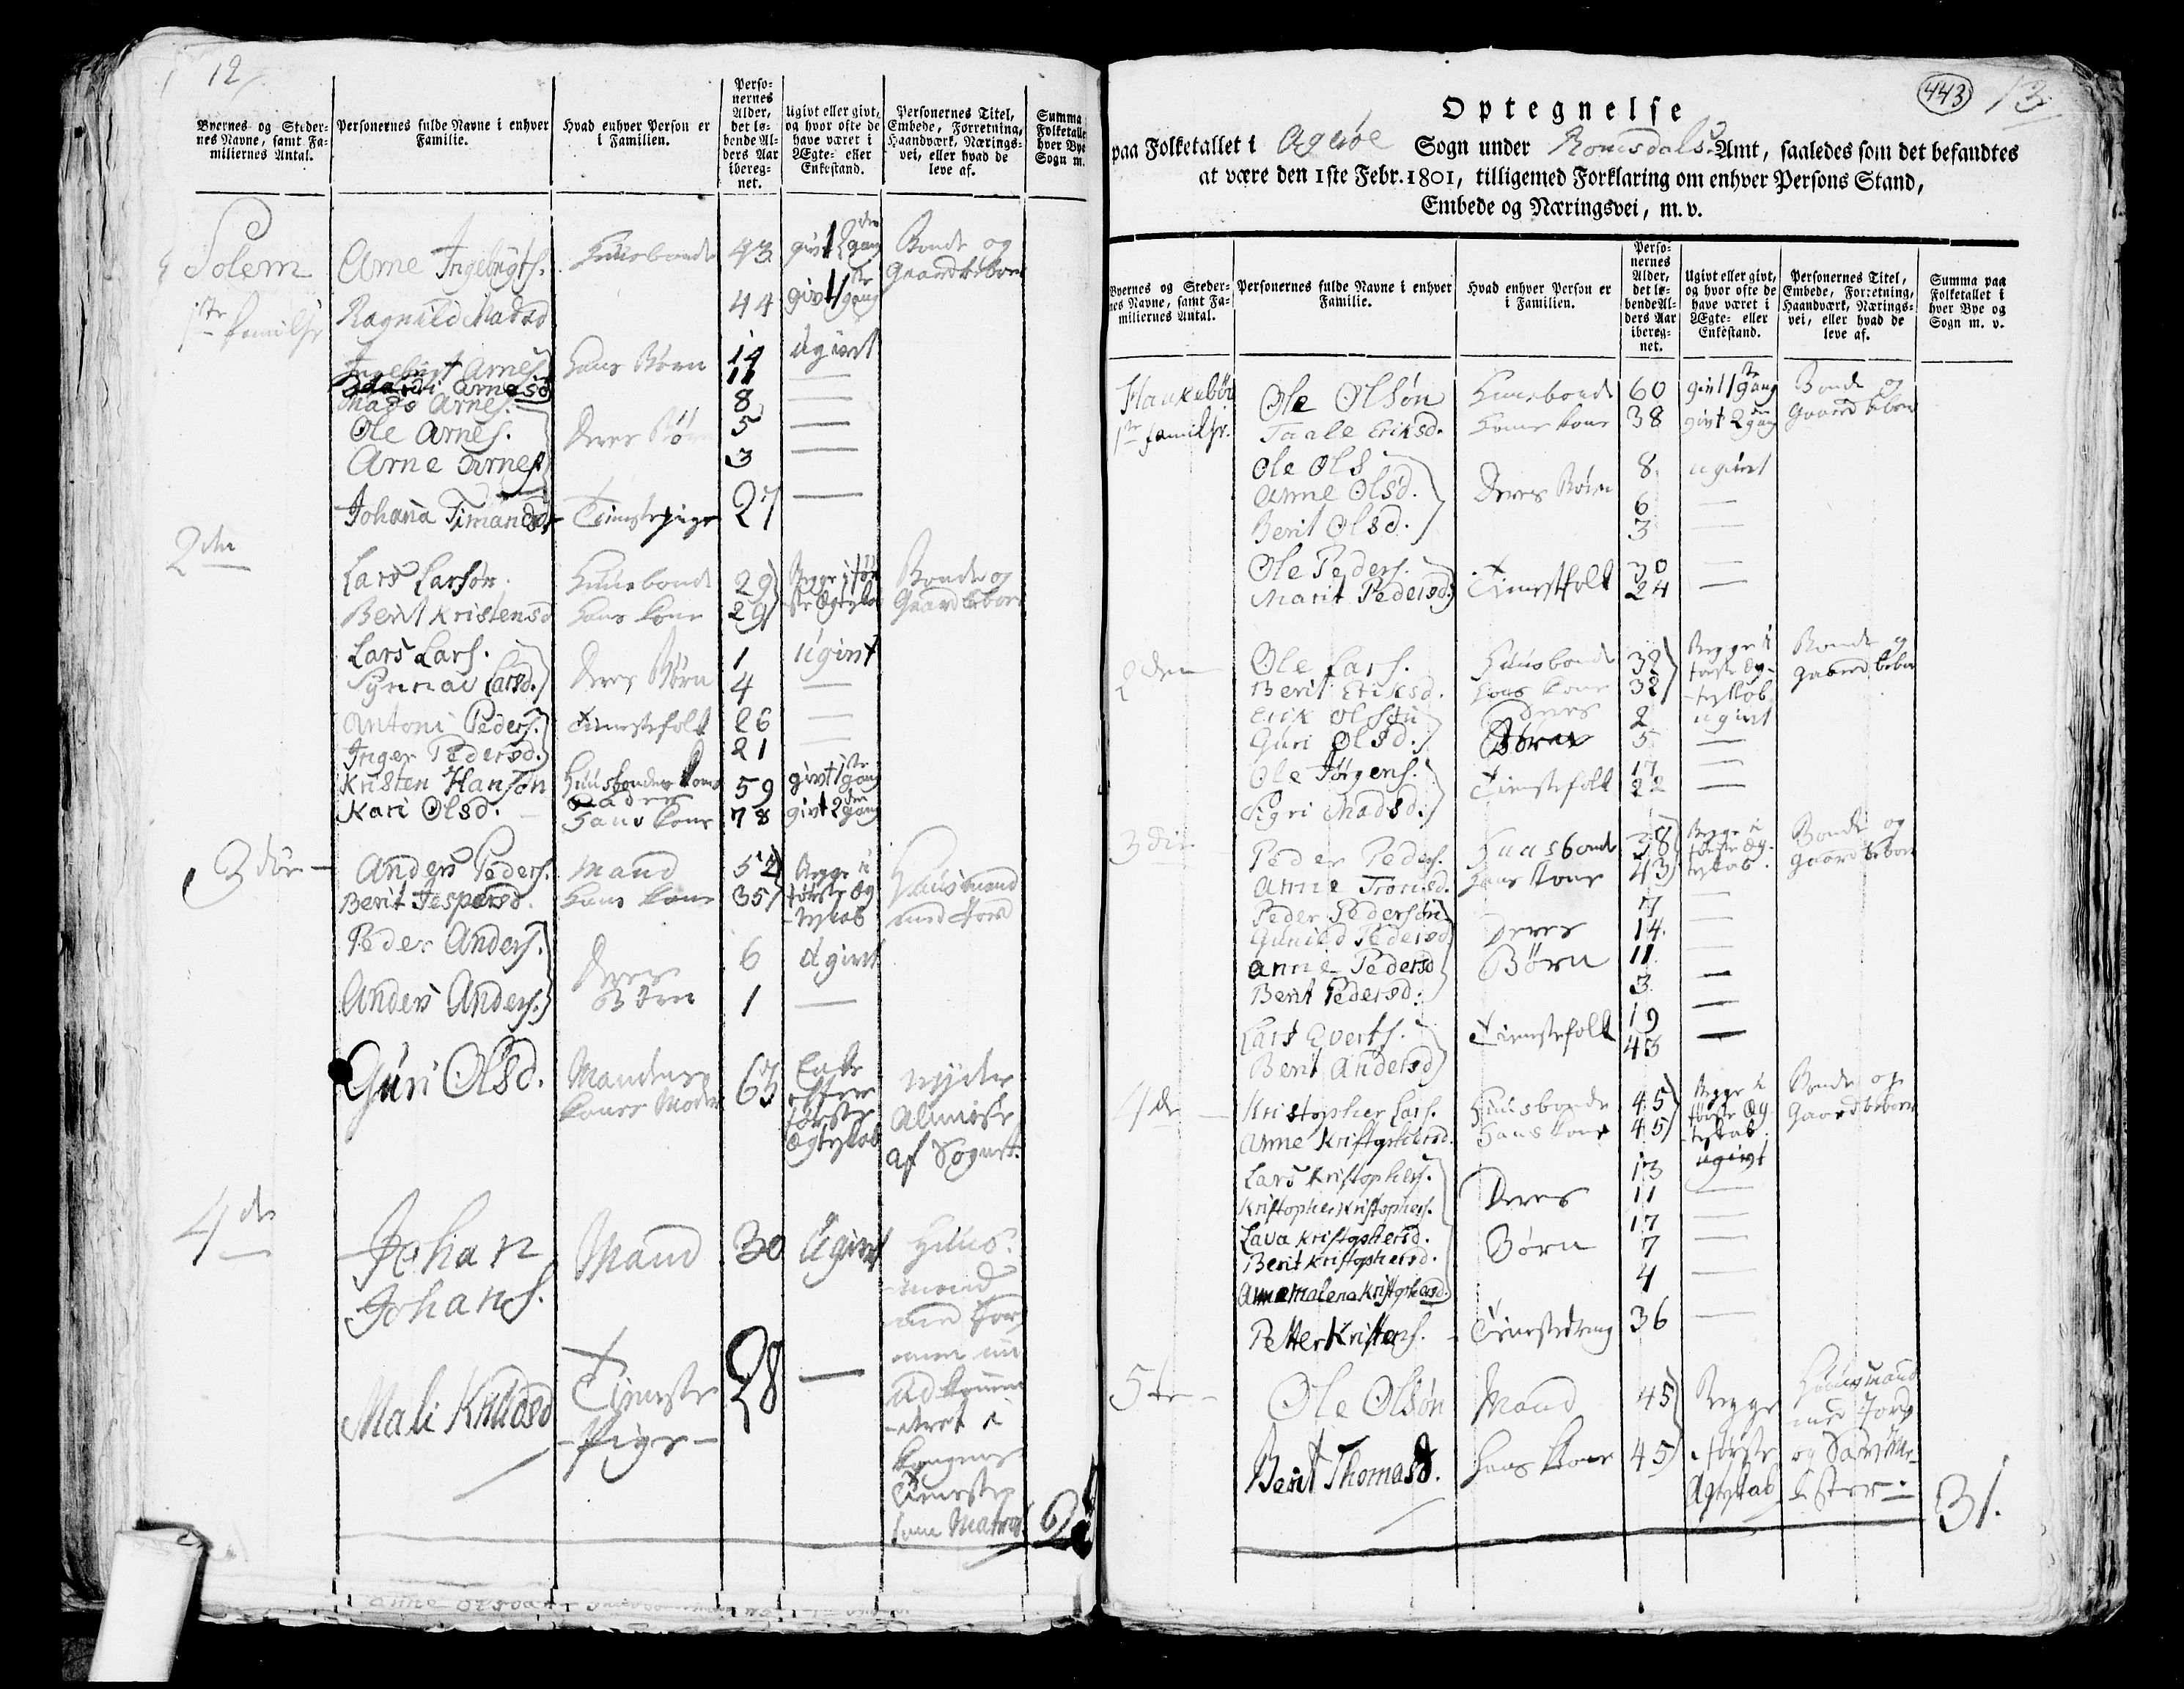 12
Byernes og Steder-
nes Navne, samt Fa-
miliernes Antal.
Personernes fulde Navne i enhver
Familie.
Hvad enhver Person er
i Familien.
Perso-
nernes
Alder,
det lø-
bende Al-
ders Aar
ibereg-
net.
Ugivt eller givt,
og hvor ofte de
have været i
Ægte- eller
Enkestand.
Personernes Titel,
Embede, Forretning,
Haandværk, Nærings-
vei, eller hvad de
leve af.
Summa
Folketalle
hver Bye
Sogn m.
Solem Arne Ingebrigts. Huusbonde 43 givt 2den gang Bonde og
Gaardbeboer
1ste familie Ragnild Madsd 44 givt 1ste gang
Ingebrigt Arnes. Hans Børn 14 ugivt
Arnesd 11 —
Mads Arnes. 8 —
Ole Arnes. Deres Børn 5 —
Arne Arnes. 3 —
Johana Timandsd Tienstepige 27 —
2den
Lars Larsøn. Huusbonde 29 Begge i før-
ste Ægteskab Bonde og
Gaardbeboer
Berit Kristensd Hans kone 29
Lars Lars. Deres Børn 1 Ugivt
Synnav Larsd. 4 —
Antoni Peders. Tienestefolk 26 —
Inger Pedersd. 21 —
Kristen Hansøn Huusbondes kones
Fader 59 givt 1ste gang
Kari Olsd. Hans kone 78 givt 2den gang
3die Anders Peders. Mand 52 Begge i
første Æg-
teskab Huusmand
med Jord
Berit Jespersd. Hans kone 35
Peder Anders. Deres
Børn 6 Ugivt
Anders Anders. 1 —
Guri Olsd. Mandens
kones Moder 63 Enke
efter
første
Ægteskab nyder
Almisse
af Sognet.
4de
Johan
Johans. Mand 30 Ugivt Huus-
mand
med Jord
men nu
udkomman-
deret i
Kongens
Tieneste
som Matros
Mali Knudsd Tieneste
Pige 28 —
443
13
Optegnelse
paa Folketallet i Agerøe Sogn under Romsdals Amt, saaledes som det befandtes
at være den 1ste Febr. 1801, tilligemed Forklaring om enhver Persons Stand,
Embede og Næringsvei, m. v.
Byernes og Steder-
nes Navne, samt Fa-
miliernes Antal.
Personernes fulde Navne i enhver
Familie.
Hvad enhver Person er
i Familien.
Perso-
nernes
Alder,
det lø-
bende Al-
ders Aar
ibereg-
net.
Ugivt eller givt,
og hvor ofte de
have været i
Ægte- eller
Enkestand.
Personernes Titel,
Embede, Forretning,
Haandværk, Nærings-
vei, eller hvad de
leve af.
Summa paa
Folketallet i
hver Bye og
Sogn m. v.
Haukebøe Ole Olsøn Huusbonde 60 givt 1ste gang Bonde og
Gaardbeboer
1ste familie. Taale Eriksd. Hans kone 38 givt 2den gang
Ole Ols. Deres Børn 8 ugivt
Anne Olsd. 6 —
Berit Olsd. 3 —
Ole Peders. Tienestfolk 30 —
Marit Pedersd. 24 —
2den Ole Lars. Huusbonde 32 Begge i
første Æg-
teskab Bonde og
Gaardbeboer
Berit Eriksd. Hans kone 32
Erik Olsøn Deres 2 ugivt
Guri Olsd. Børn 5 —
Ole Jørgens. Tienestefolk 17 —
Sigri Madsd. 22
3die Peder Peders. Huusbonde 38 Begge i
første Æg-
teskab. Bonde og
Gaardbeboer
Anne Tronsd. Hans kone 43
Peder Pedersøn Deres 7 —
Gunild Pedersd 14 —
Anne Pedersd Børn 11 —
Berit Pedersd. 3 —
Lars Everts. Tienestefolk 19 —
Berit Andersd 43 —
4de Kristopher Lars. Huusbonde 45 Begge i
første Æg-
teskab Bonde og
Gaardbeboer
Anne Kristophersd. Hans kone 45
Lars Kristophers. Deres 13 ugivt
Kristopher Kristophers. 11 —
Lava Kristophersd. 17 —
Berit Kristophersd. Børn 7 —
Anne Malena Kristophersd. 4 —
Petter Kristens. Tienestedreng 36 —
5te Ole Olsøn Mand 45 Begge
første
Ægteskab Huusmand
med Jord
og
Berit Thomasd. Hans kone 45
31.